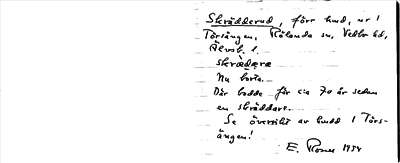 Skrädderud, förr hmd, nr 1
Törsängen, Rölanda sn, Vedbo hd,
Älvsb. l.
skrædære
Nu borta.
Där bodde för c:a 70 år sedan
en skräddare.
Se översikt av hmd 1 Törs-
ängen!
E. 1934